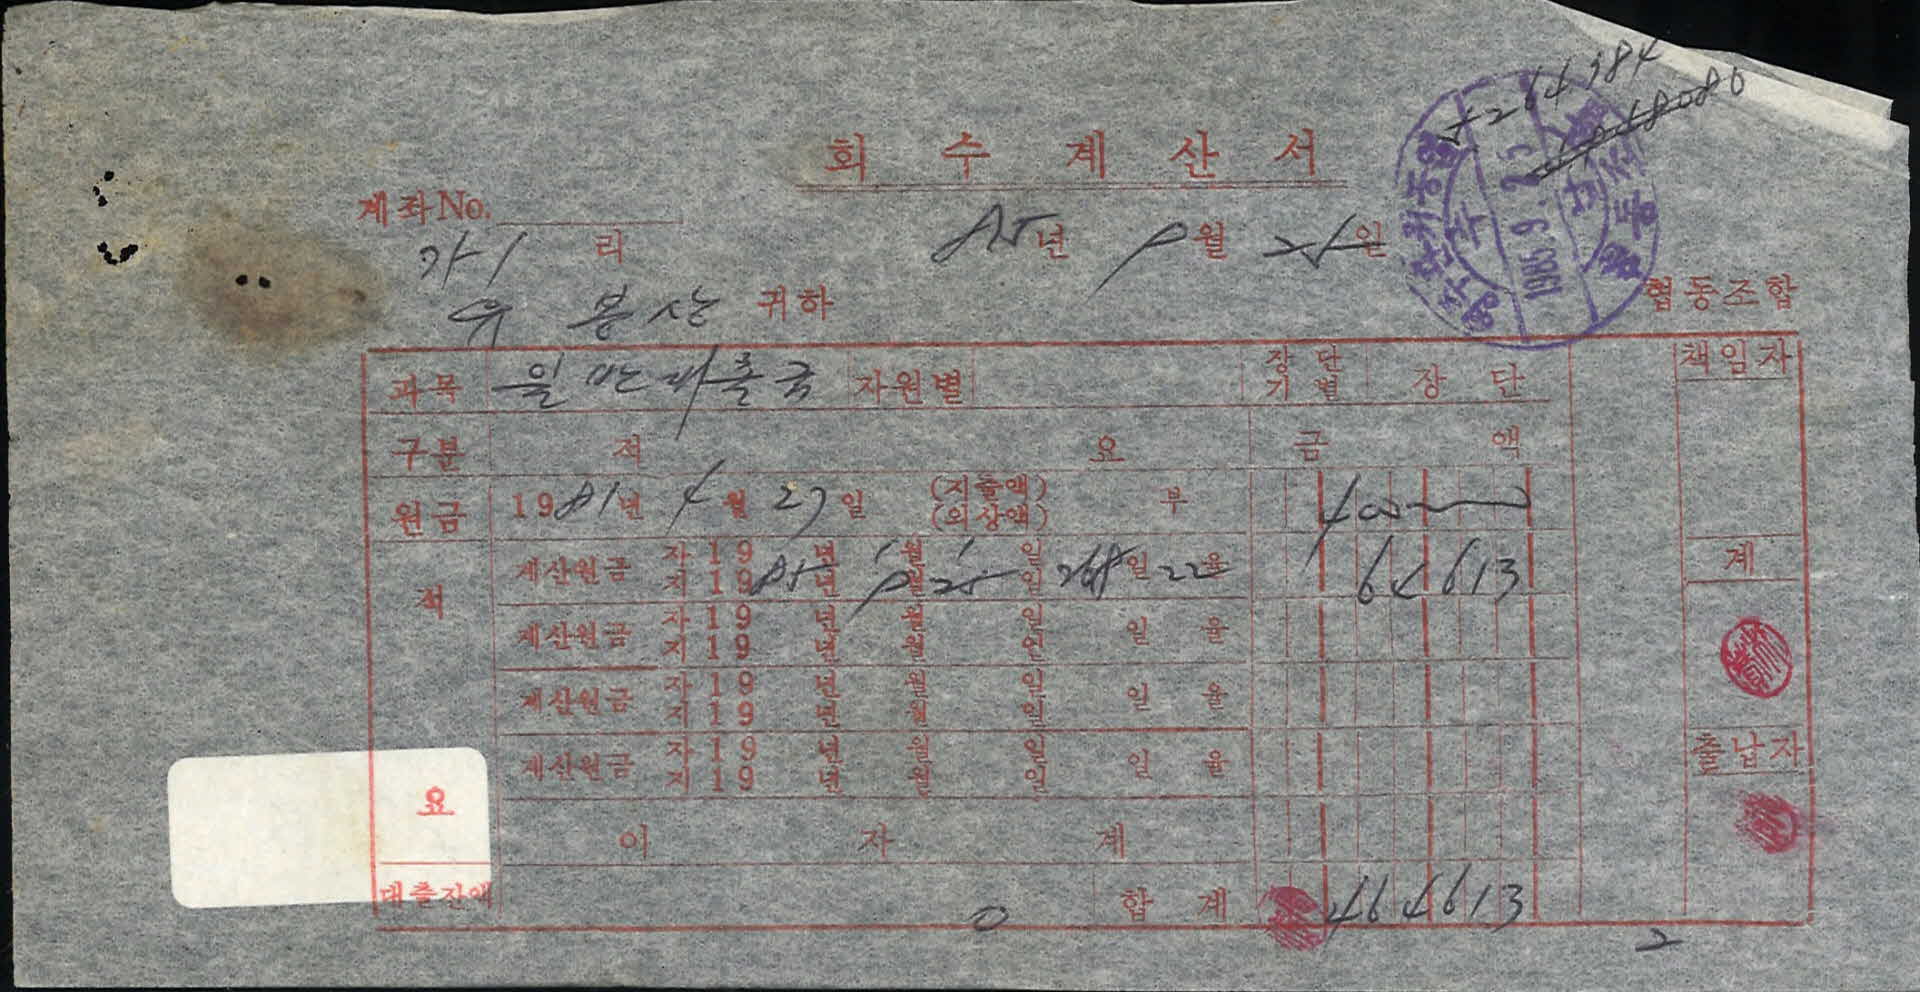 회수계산서
계좌No.
가-1 리
85년 9월 25일
유봉상 귀하
1985. 9. 25
협동조합
과목 일반대출금 자원별 장단기별 장 단 책임자
구분 적 요 금 액
원금 1981년 4월 27일 (지출액) (외상액) 부 400
적 계산원금 자19 년 1월 1일
지1985년 9월 25일 268일 22율 64613 계
계산원금 자19 년 월 일
지19 년 월 일 일 율
계산원금 자19 년 월 일
지19 년 월 일 일 율
계산원금 자19 년 월 일
지19 년 월 일 일 율 출납자
요
이 자 계
대출잔액 0 합계 464613
2